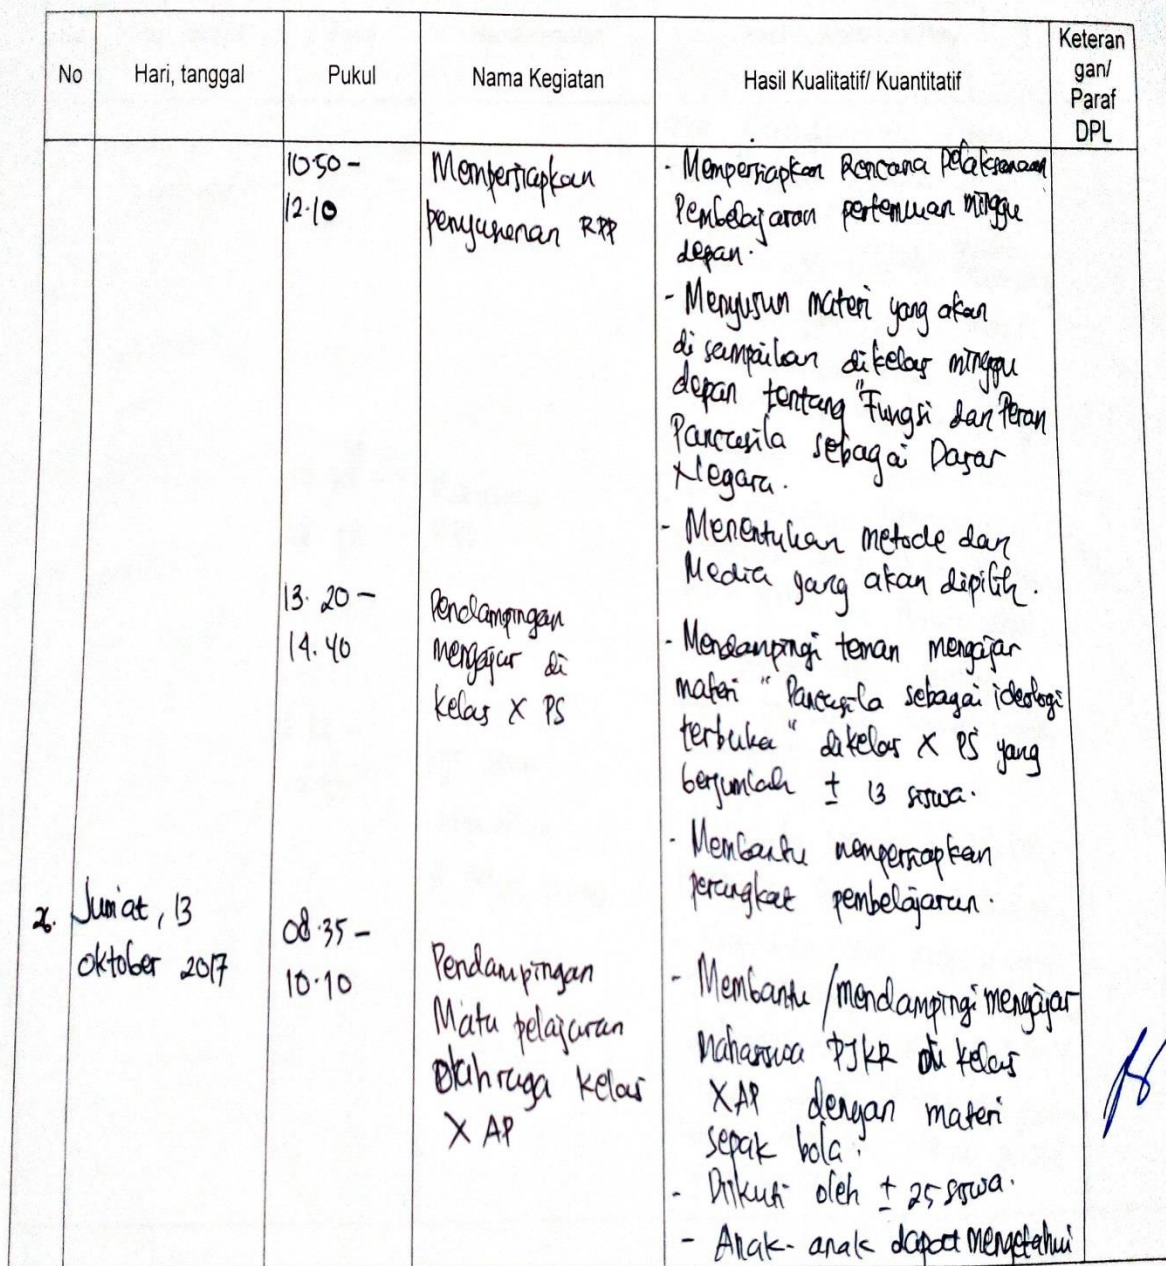 No
Hari, tanggal
Pukul
Nama Kegiatan
Hasil Kualitatif/ Kuantitatif
Keteran
gan/
Paraf
DPL
10.50 -
12.10
Mempersiapkan
penyusunan RPP
- Mempersiapkan Rencana Pelaksanaan
Pembelajaran pertemuan minggu
depan.
- Menyusun materi yang akan
disampaikan dikelas minggu
depan tentang "Fungsi dan Peran
Pancasila sebagai Dasar
Negara.
- Menentukan metode dan
Media yang akan dipilih.
13.20 -
14.40
Pendampingan
mengajar di
kelas X PS
- Mendampingi teman mengajar
materi "Pancasila sebagai ideologi
terbuka" dikelas X PS yang
berjumlah ± 13 siswa.
- Membantu mempersiapkan
perangkat pembelajaran.
Jum'at, 13
oktober 2017
08.35 -
10.10
Pendampingan
Mata pelajaran
Olahraga kelas
X AP
- Membantu /mendampingi mengajar
Mahasiswa PJKR di kelas
X AP dengan materi
sepak bola.
- Diikuti oleh ± 25 siswa.
- Anak-anak dapat mengetahui